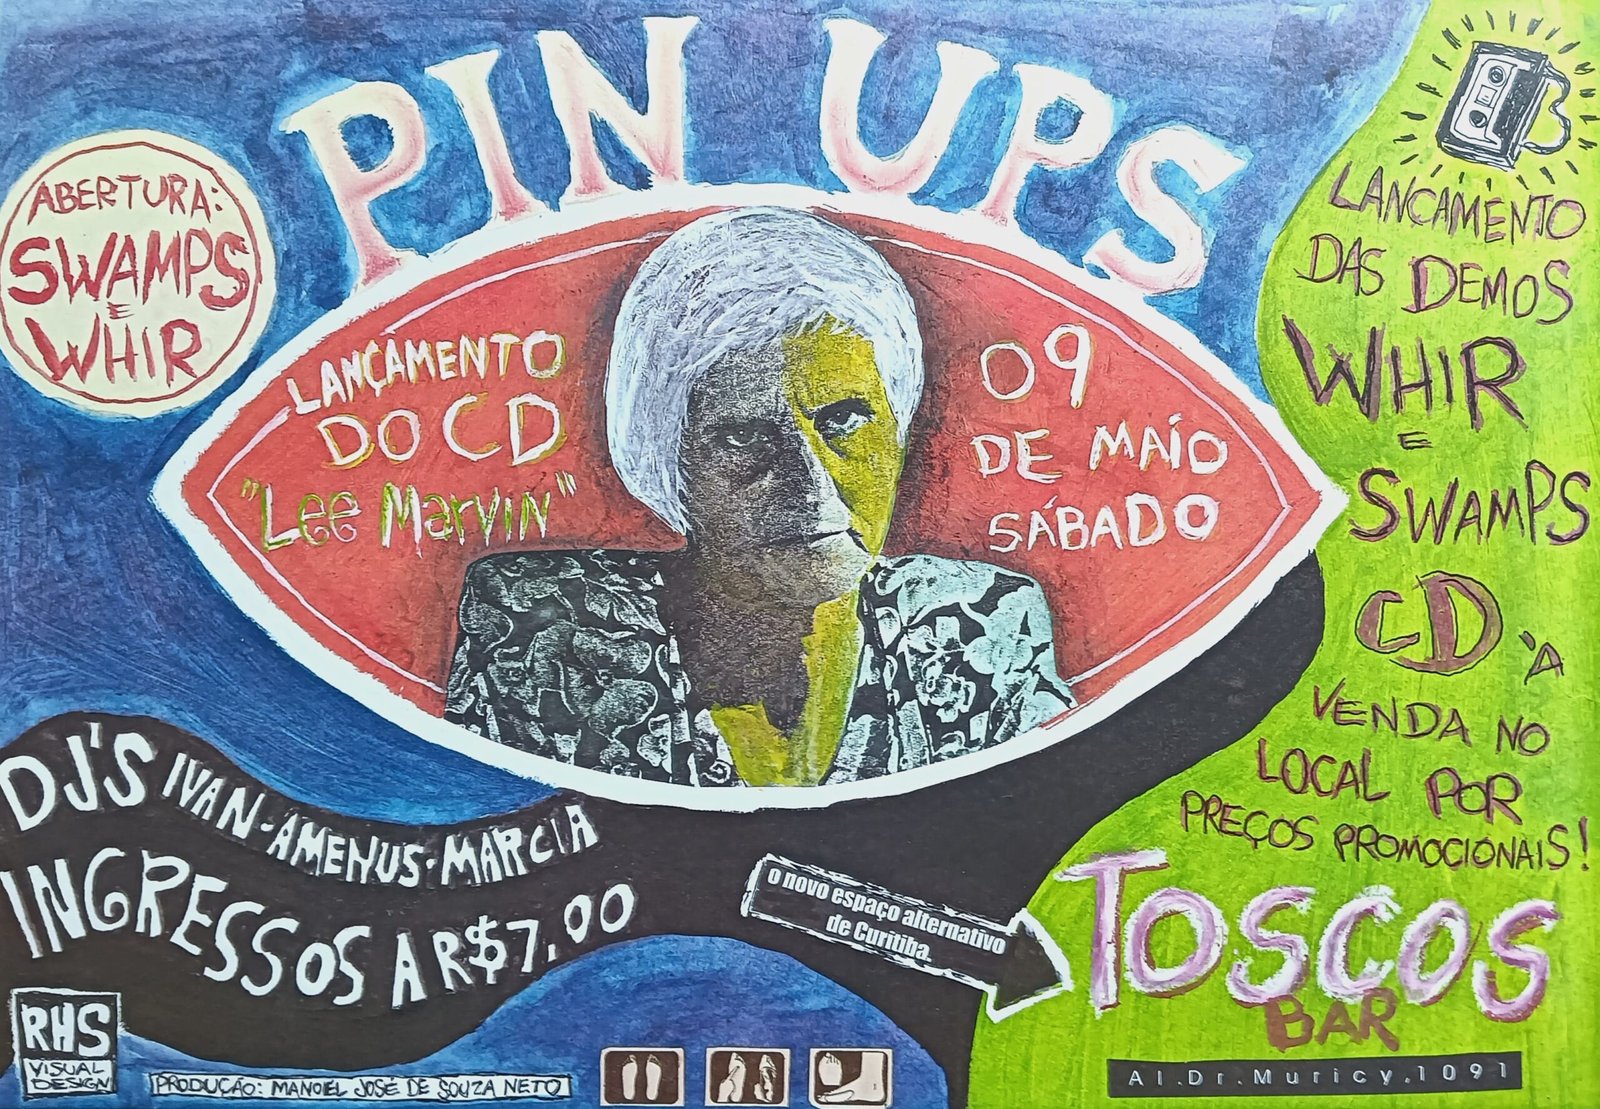 PIN UPS
ABERTURA:
SWAMPS
E
WHIR
LANÇAMENTO
DO CD
"Lee Marvin"
09
DE MAIO
SÁBADO
LANCAMENTO
DAS DEMOS
WHIR
E
SWAMPS
CD À
VENDA NO
LOCAL POR
PREÇOS PROMOCIONAIS!
DJ'S IVAN-AMENUS-MARCIA
INGRESSOS A R$7,00
o novo espaço alternativo
de Curitiba.
TOSCOS
BAR
Al.Dr.Muricy,1091
RHS
VISUAL
DESIGN
PRODUÇÃO: MANOEL JOSÉ DE SOUZA NETO